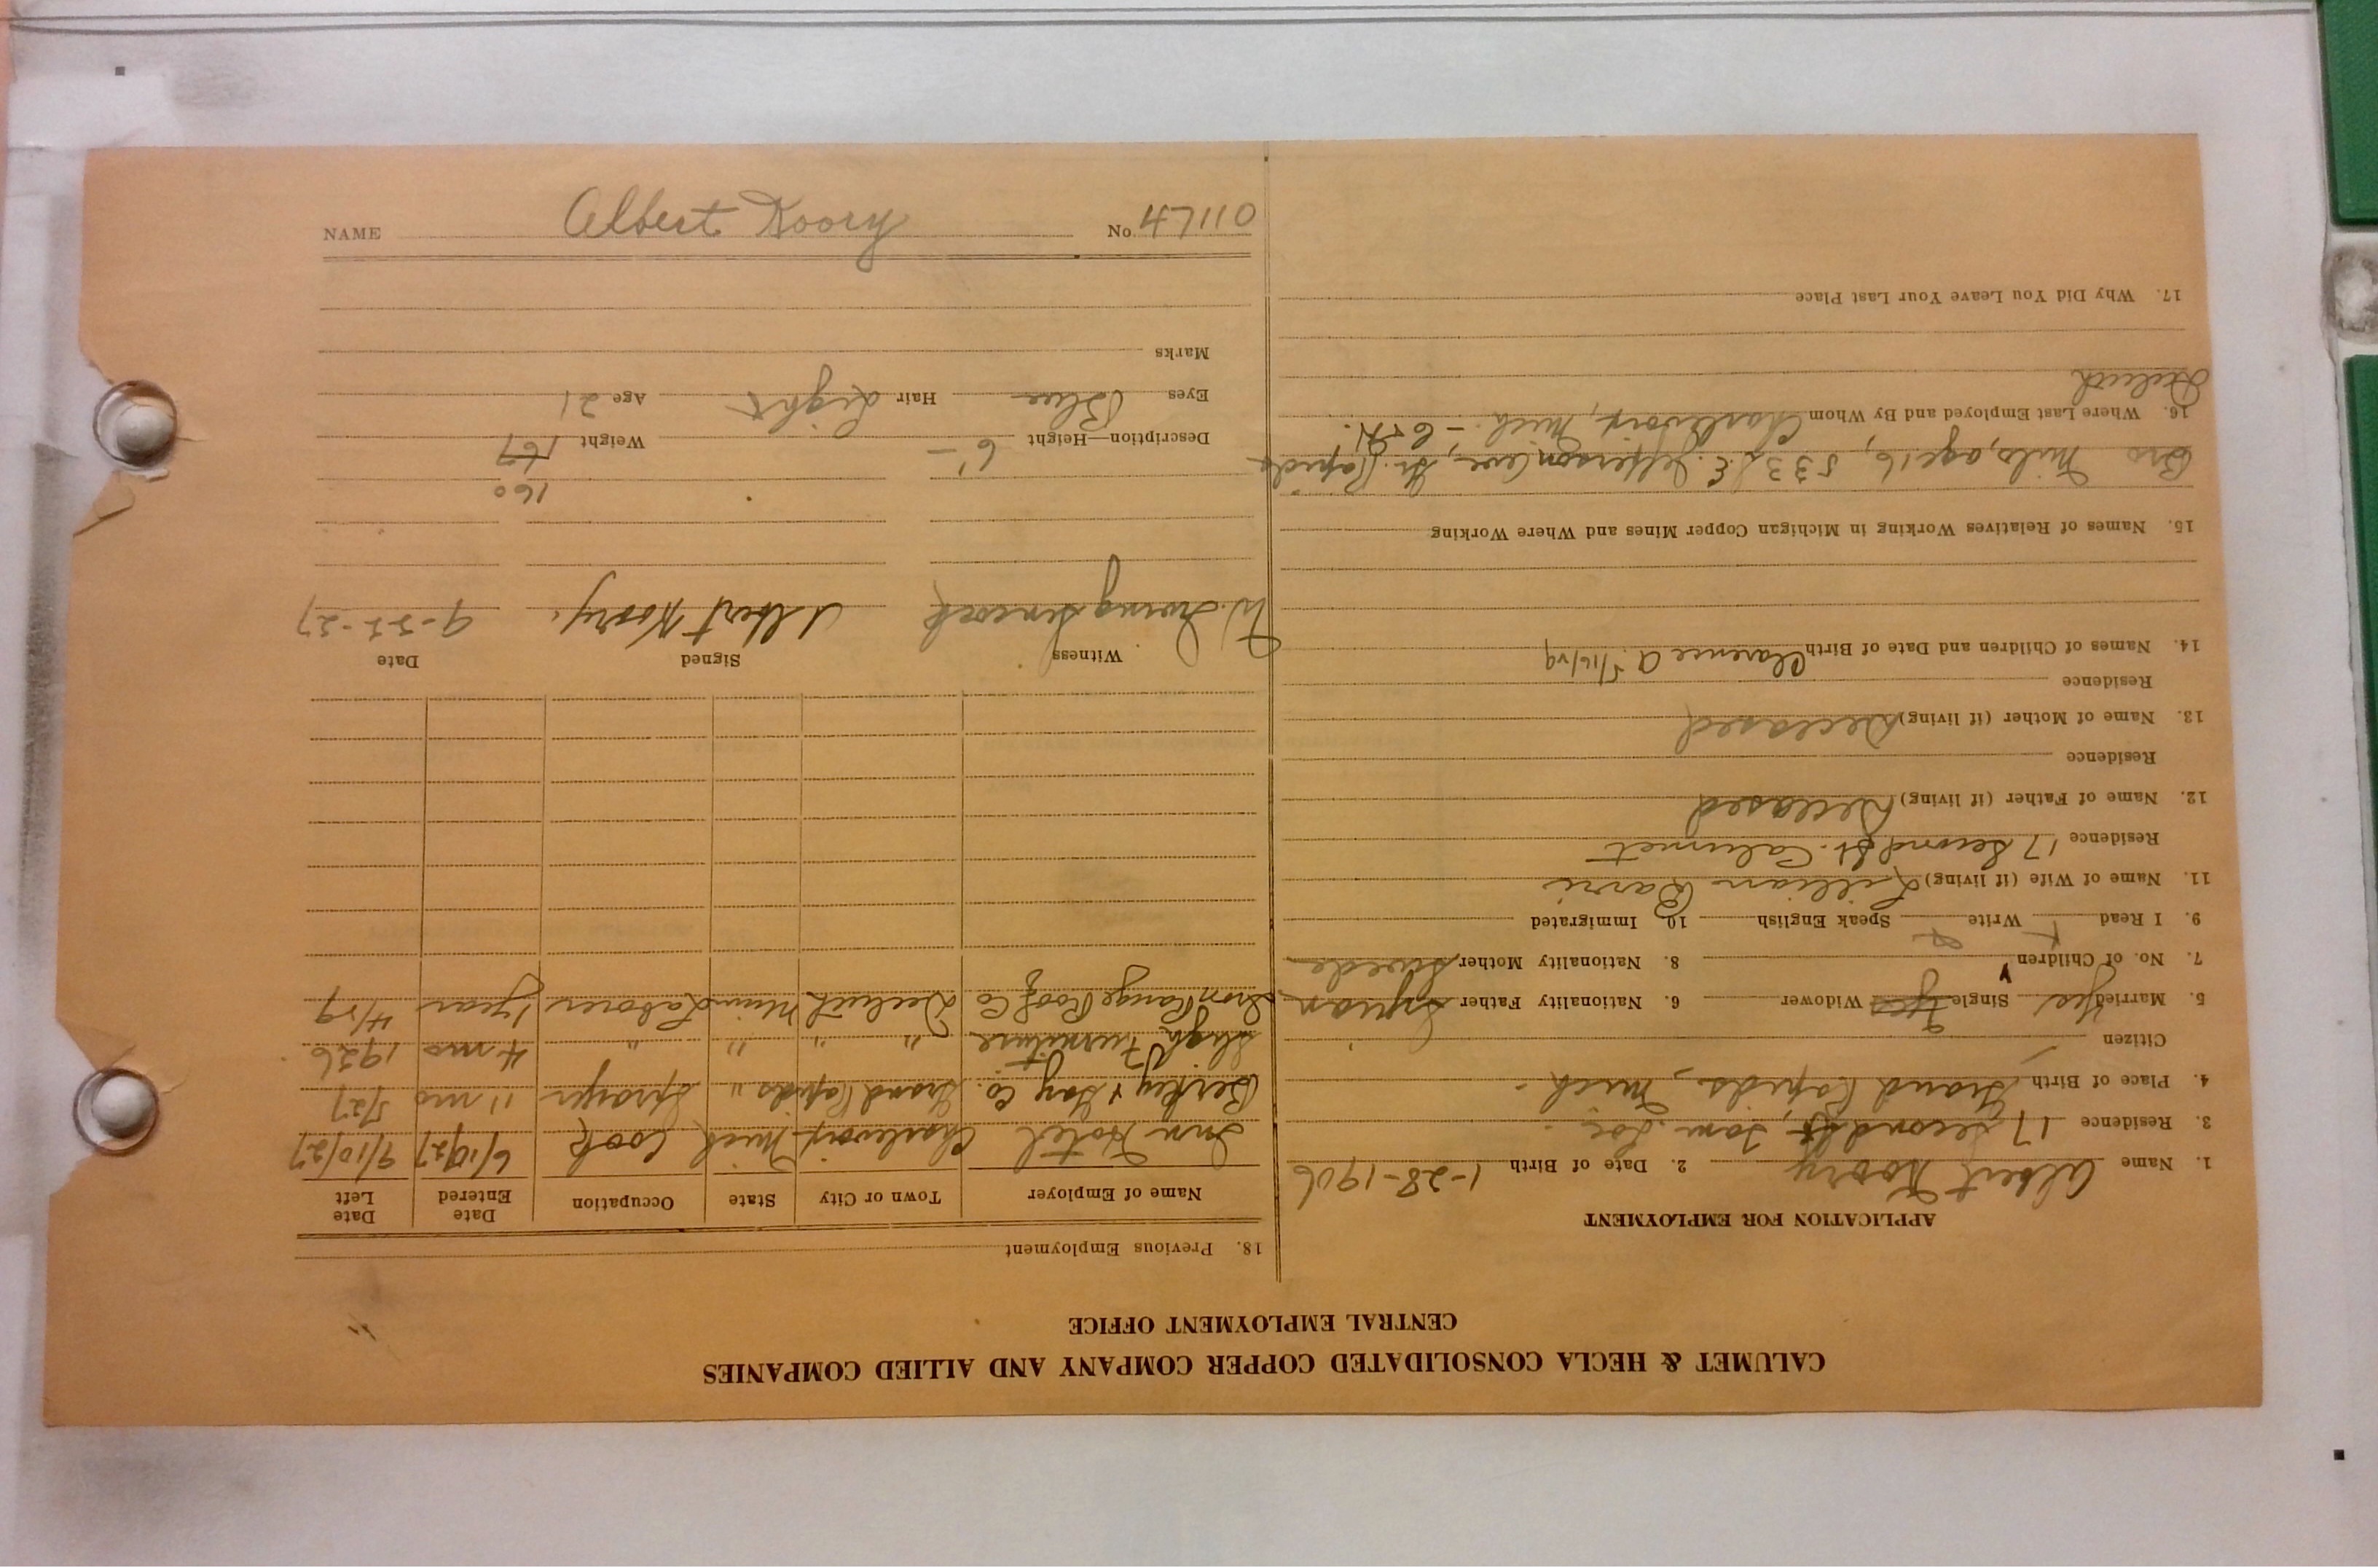 CALUMET & HECLA CONSOLIDATED COPPER COMPANY AND ALLIED COMPANIES
CENTRAL EMPLOYMENT OFFICE
APPLICATION FOR EMPLOYMENT
1. Name Albert Koory 2. Date of Birth 1-28-1906
3. Residence 17 Second St, Tam. Loc.
4. Place of Birth Grand Rapids, Mich.
Citizen
5. Married Yes Single Yes Widower 6. Nationality Father Syrian
7. No. of Children 8. Nationality Mother Swede
9. I Read Write Speak English 10. Immigrated
11. Name of Wife (if living) Lillian Barri
Residence 17 Second St. Calumet
12. Name of Father (if living) Deceased
Residence
13. Name of Mother (if living) Deceased
Residence
14. Names of Children and Date of Birth Clarence A.
15. Names of Relatives Working in Michigan Copper Mines and Where Working
Bro Milo, age 16, 533 S.E. Jefferson Ave, Gr. Rapids
16. Where Last Employed and By Whom Charlevoix, Mich. -
Duluth
17. Why Did You Leave Your Last Place
18. Previous Employment
Name of Employer Town or City State Occupation Date Entered Date Left
Inn Hotel Charlevoix Mich Cook 6/10/27 9/10/27
Berkey & Gay Co. Grand Rapids " Sprayer 11 mo 5/27
Sligh Furniture " " " " 4 mo 1926
Iron Range Roof Co Duluth Minn Laborer 1 year 4/29
Witness Signed Date
W. Irving Albert Koory. 9-22-27
160
Description—Height 6'- Weight 167
Eyes Blue Hair Light Age 21
Marks
NAME Albert Koory No 47110